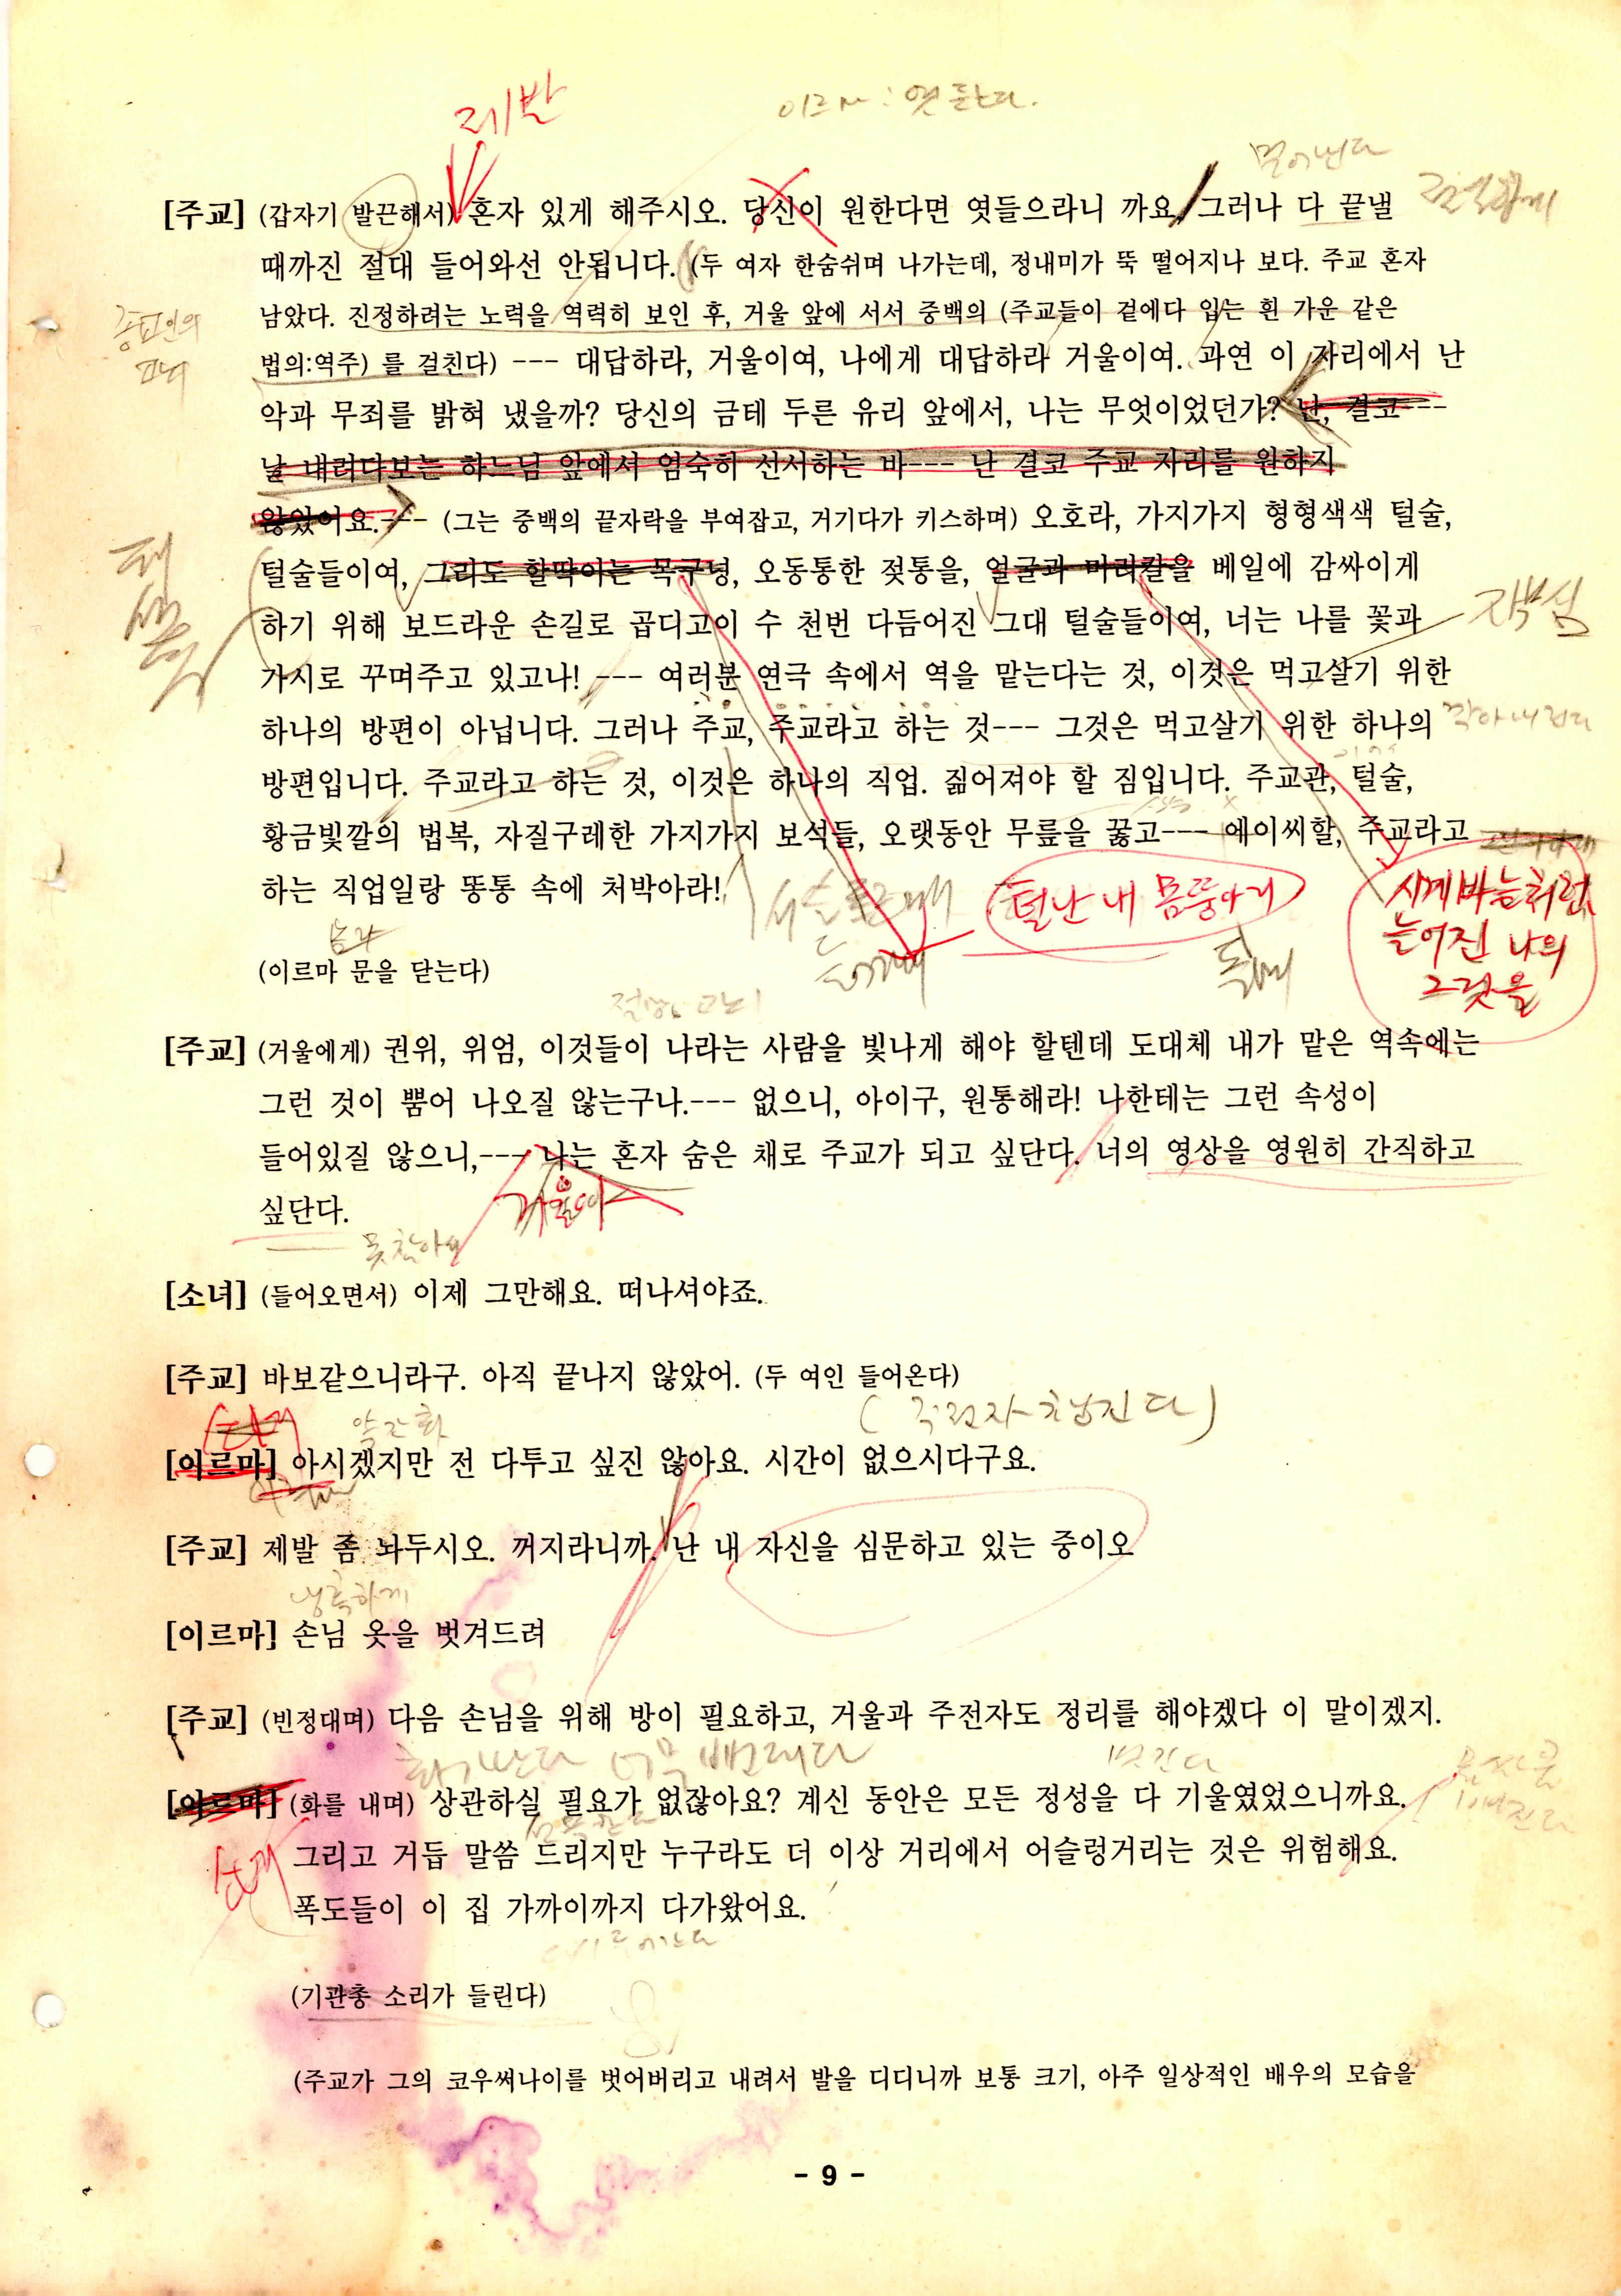 제발
이르마 : 엿듣는다.
밀어낸다
[주교] (갑자기 발끈해서) 혼자 있게 해주시오. 당신이 원한다면 엿들으라니 까요. 그러나 다 끝낼
때까진 절대 들어와선 안됩니다. (두 여자 한숨쉬며 나가는데, 정내미가 뚝 떨어지나 보다. 주교 혼자
남았다. 진정하려는 노력을 역력히 보인 후, 거울 앞에 서서 중백의 (주교들이 겉에다 입는 흰 가운 같은
종교인의
고뇌
법의:역주) 를 걸친다) --- 대답하라, 거울이여, 나에게 대답하라 거울이여. 과연 이 자리에서 난
악과 무죄를 밝혀 냈을까? 당신의 금테 두른 유리 앞에서, 나는 무엇이었던가? 난, 결코---
날 내려다보는 하느님 앞에서 엄숙히 선서하는 바--- 난 결코 주교 자리를 원하지
않았어요.--- (그는 중백의 끝자락을 부여잡고, 거기다가 키스하며) 오호라, 가지가지 형형색색 털술,
털술들이여, 그리도 할딱이는 목구녕, 오동통한 젖통을, 얼굴과 머리칼을 베일에 감싸이게
하기 위해 보드라운 손길로 곱디고이 수 천번 다듬어진 그대 털술들이여, 너는 나를 꽃과
가시로 꾸며주고 있고나! --- 여러분 연극 속에서 역을 맡는다는 것, 이것은 먹고살기 위한
하나의 방편이 아닙니다. 그러나 주교, 주교라고 하는 것--- 그것은 먹고살기 위한 하나의
방편입니다. 주교라고 하는 것, 이것은 하나의 직업. 짊어져야 할 짐입니다. 주교관, 털술,
황금빛깔의 법복, 자질구레한 가지가지 보석들, 오랫동안 무릎을 꿇고--- 에이씨할, 주교라고
하는 직업일랑 똥통 속에 처박아라!
털난 내 몸뚱아리
시계바늘처럼
늘어진 나의
그것을
(이르마 문을 닫는다)
절망, 고뇌
[주교] (거울에게) 권위, 위엄, 이것들이 나라는 사람을 빛나게 해야 할텐데 도대체 내가 맡은 역속에는
그런 것이 뿜어 나오질 않는구나.--- 없으니, 아이구, 원통해라! 나한테는 그런 속성이
들어있질 않으니,--- 나는 혼자 숨은 채로 주교가 되고 싶단다. 너의 영상을 영원히 간직하고
거울아
싶단다.
못참아요
[소녀] (들어오면서) 이제 그만해요. 떠나셔야죠.
[주교] 바보같으니라구. 아직 끝나지 않았어. (두 여인 들어온다)
약간 화
[이르마] 아시겠지만 전 다투고 싶진 않아요. 시간이 없으시다구요.
[주교] 제발 좀 놔두시오. 꺼지라니까. 난 내 자신을 심문하고 있는 중이오
냉혹하게
[이르마] 손님 옷을 벗겨드려
[주교] (빈정대며) 다음 손님을 위해 방이 필요하고, 거울과 주전자도 정리를 해야겠다 이 말이겠지.
벗긴다
[이르마] (화를 내며) 상관하실 필요가 없잖아요? 계신 동안은 모든 정성을 다 기울였었으니까요.
소녀
그리고 거듭 말씀 드리지만 누구라도 더 이상 거리에서 어슬렁거리는 것은 위험해요.
폭도들이 이 집 가까이까지 다가왔어요.
(기관총 소리가 들린다)
(주교가 그의 코우써나이를 벗어버리고 내려서 발을 디디니까 보통 크기, 아주 일상적인 배우의 모습을
- 9 -